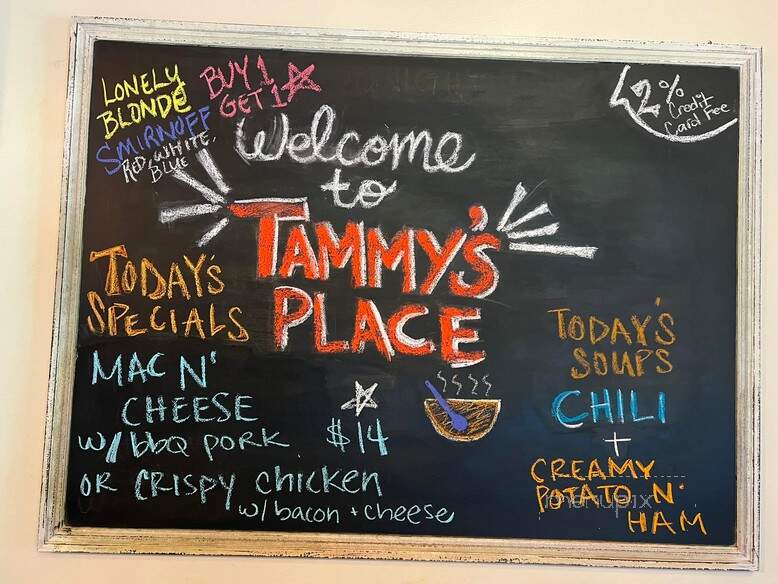 LONELY
BLONDE
SMIRNOFF
RED, WHITE,
BLUE
BUY 1
GET 1
Welcome
to
TAMMY'S
PLACE
2%
Credit
Card Fee
TODAY'S
SPECIALS
MAC N'
CHEESE
w/ bbq pork $14
OR CRISPY chicken
w/ bacon + cheese
TODAY'S
SOUPS
CHILI
+
CREAMY
POTATO N'
HAM